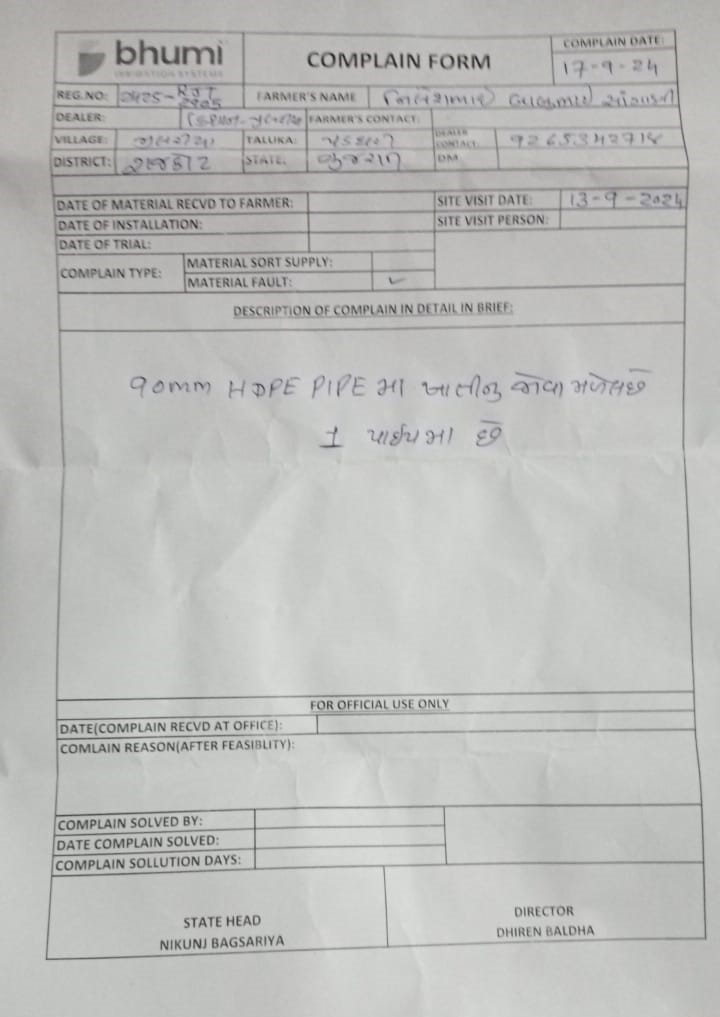 bhumi
IRRIGATION SYSTEMS
COMPLAIN FORM
COMPLAIN DATE:
17-9-24
REG.NO: 2425-RJT 2905 FARMER'S NAME
DEALER: FARMER'S CONTACT:
VILLAGE: TALUKA: પડધરી DEALER CONTACT: 9265342718
DISTRICT: રાજકોટ STATE: ગુજરાત DM
DATE OF MATERIAL RECVD TO FARMER: SITE VISIT DATE: 13-9-2024
DATE OF INSTALLATION: SITE VISIT PERSON:
DATE OF TRIAL:
COMPLAIN TYPE: MATERIAL SORT SUPPLY:
MATERIAL FAULT: ✓
DESCRIPTION OF COMPLAIN IN DETAIL IN BRIEF:
90mm HDPE PIPE મા જોવા મળેલ છે
1 પાઈપ મા છે
FOR OFFICIAL USE ONLY
DATE(COMPLAIN RECVD AT OFFICE):
COMLAIN REASON(AFTER FEASIBLITY):
COMPLAIN SOLVED BY:
DATE COMPLAIN SOLVED:
COMPLAIN SOLLUTION DAYS:
STATE HEAD
NIKUNJ BAGSARIYA
DIRECTOR
DHIREN BALDHA